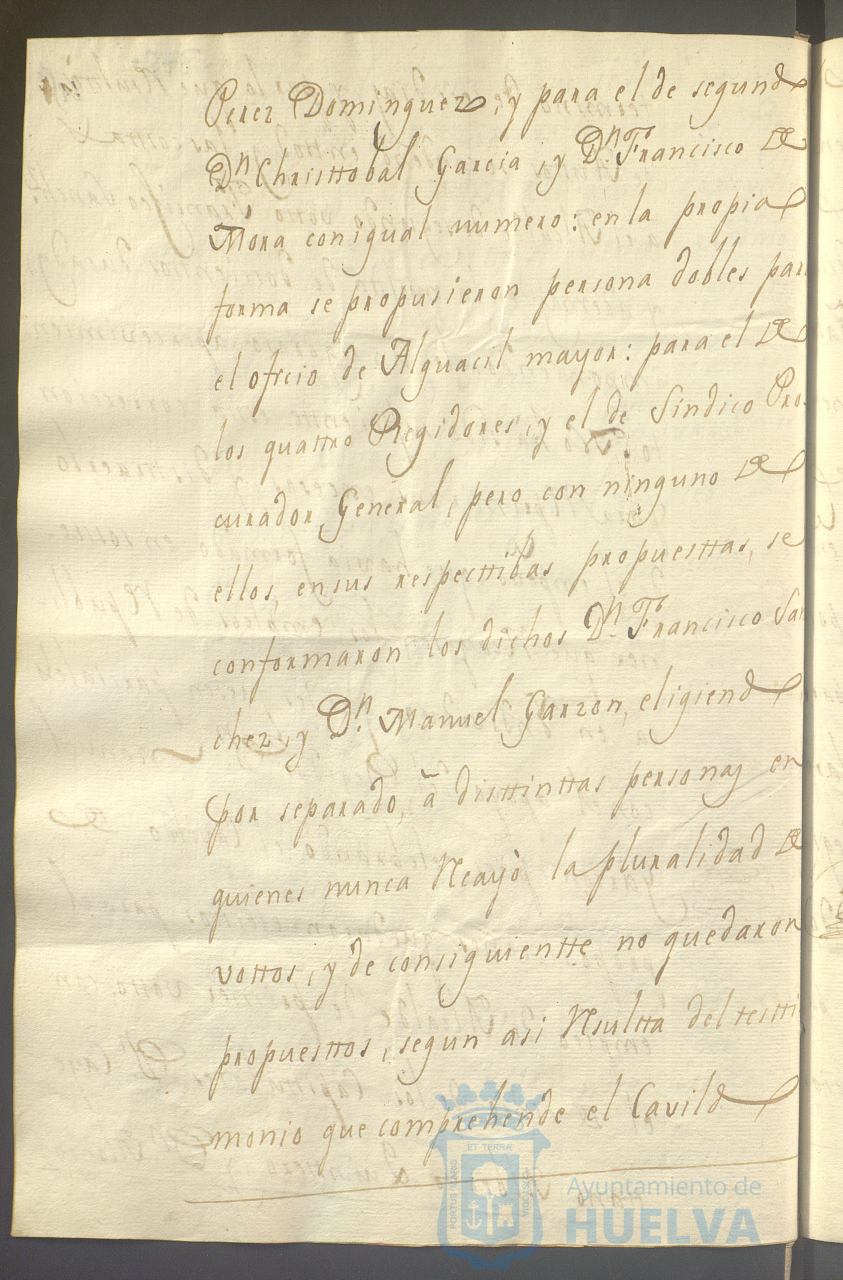 Perez Dominguez, y para el de segundo
Dn. Christtobal Garcia, y Dn. Francisco de
Mora con igual numero: en la propia
forma se propusieron persona dobles para
el ofrcio de Alguacil mayor: para el de
los quattro Regidores, y el de Sindico Pro-
curador General, pero con ninguno de
ellos, en sus respecttibas propuesttas, se
conformaron los dichos Dn. Francisco San
chez, y Dn. Manuel Garzon, eligiendo
por separado, â disttinttas personas en
quienes nunca Recayò la pluralidad de
vottos, y de consiguientte no quedaron
propuesttos, segun asi Resultta del testti
monio que comprehende el Cavildo
ET TERRÆ
PORTUS MARIS
CUSTODIA
Ayuntamiento de
HUELVA